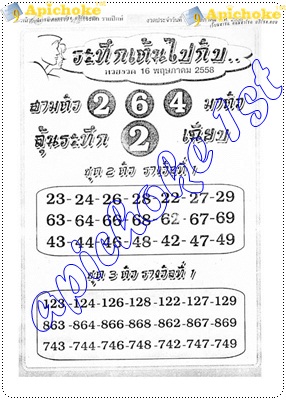 Apichoke Apichoke
ระทึกเห็นไปกับ..
งวดวันที่ 16 พฤษภาคม 2558
สามตัว 2 6 4 มาตัว
ลุ้นระทึก 2 เฉียบ
ชุด 2 ตัว รางวัลที่ 1
23-24-26-28-22-27-29
63-64-66-68-62-67-69
43-44-46-48-42-47-49
ชุด 3 ตัว รางวัลที่ 1
123-124-126-128-122-127-129
863-864-866-868-862-867-869
743-744-746-748-742-747-749
apichoke 1st